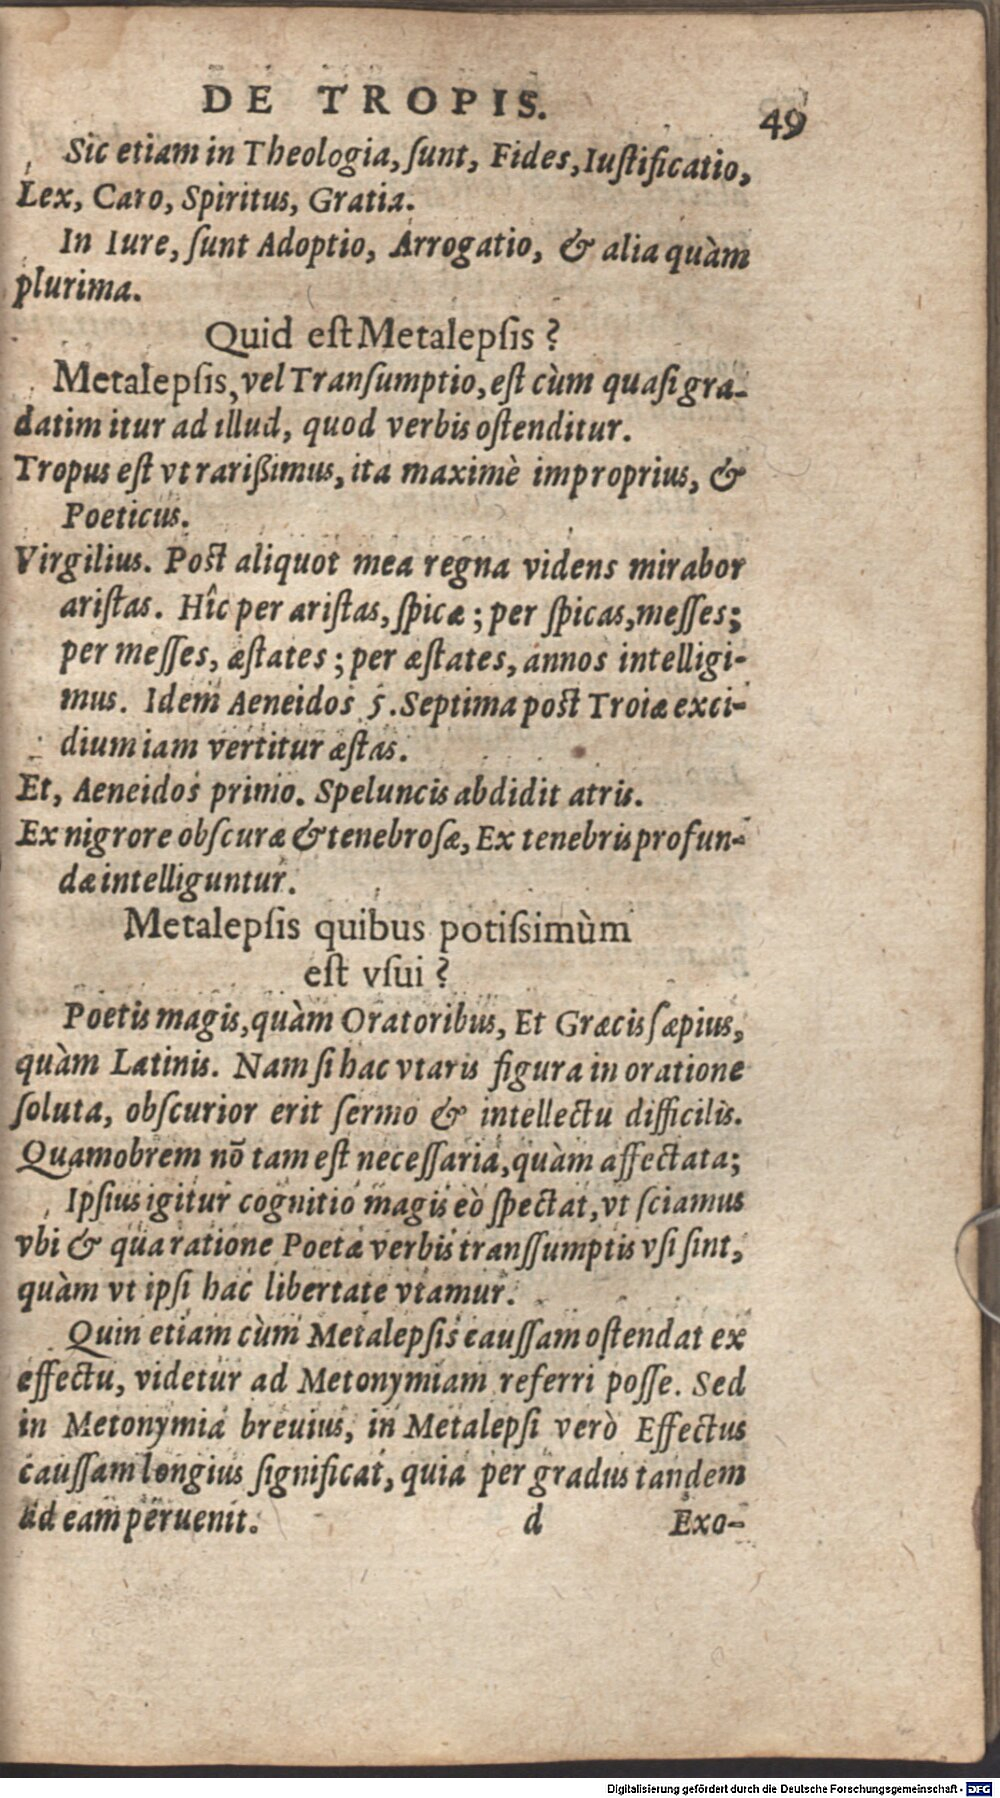 DE TROPIS. 49
Sic etiam in Theologia, ſunt, Fides, Iuſtificatio,
Lex, Caro, Spiritus, Gratia.
In Iure, ſunt Adoptio, Arrogatio, & alia quàm
plurima.
Quid eſt Metalepſis ?
Metalepſis, vel Tranſumptio, eſt cùm quaſi gra-
datim itur ad illud, quod verbis oſtenditur.
Tropus eſt vt rarißimus, ita maximè improprius, &
Poeticus.
Virgilius. Poſt aliquot mea regna videns mirabor
ariſtas. Hîc per ariſtas, ſpicæ ; per ſpicas, meſſes;
per meſſes, æſtates ; per æſtates, annos intelligi-
mus. Idem Aeneidos 5. Septima poſt Troiæ exci-
dium iam vertitur æſtas.
Et, Aeneidos primo. Speluncis abdidit atris.
Ex nigrore obſcuræ & tenebroſæ, Ex tenebris profun-
dæ intelliguntur.
Metalepſis quibus potiſsimùm
eſt vſui ?
Poetis magis, quàm Oratoribus, Et Græcis ſæpius,
quàm Latinis. Nam ſi hac vtaris figura in oratione
ſoluta, obſcurior erit ſermo & intellectu difficilis.
Quamobrem nõ tam eſt neceſſaria, quàm affectata;
Ipſius igitur cognitio magis eò ſpectat, vt ſciamus
vbi & qua ratione Poetæ verbis tranſſumptis vſi ſint,
quàm vt ipſi hac libertate vtamur.
Quin etiam cùm Metalepſis cauſſam oſtendat ex
effectu, videtur ad Metonymiam referri poſſe. Sed
in Metonymia breuius, in Metalepſi verò Effectus
cauſſam longius ſignificat, quia per gradus tandem
ad eam peruenit. d Exo-
Digitalisierung gefördert durch die Deutsche Forschungsgemeinschaft - DFG